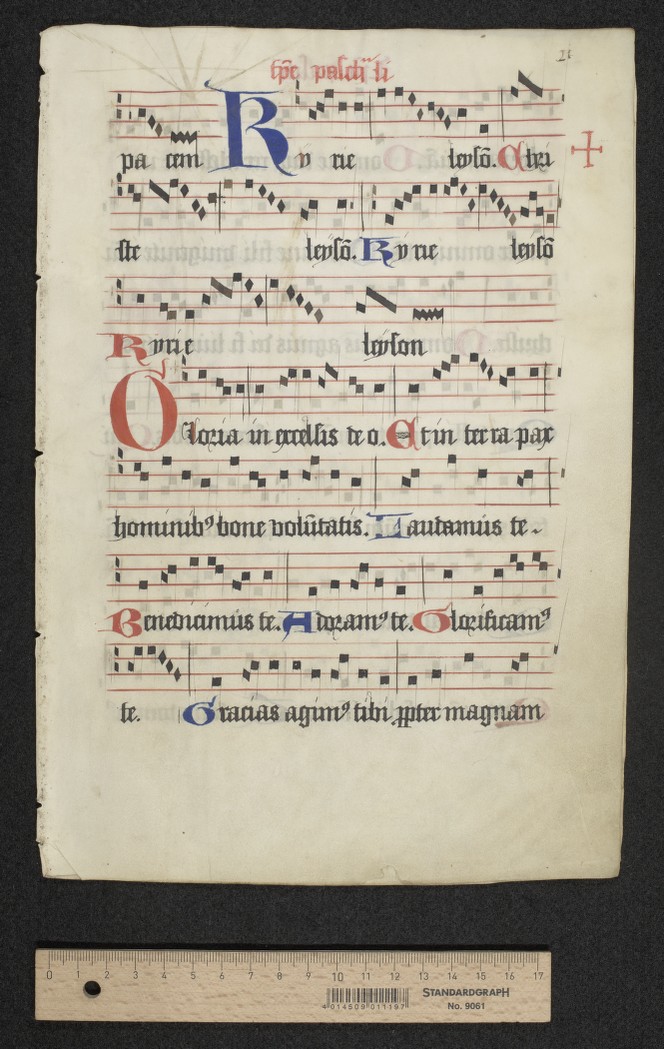 tp̄e paschali
pa cem Ky rie leysō. Chri
ste leysō. Ky rie leysō
Kyrie leyson
Gloria in excelsis deo. Et in terra pax
hominibꝰ bone volūtatis. Laudamus te.
Benedicimus te. Adoramꝰ te. Glorificamꝰ
te. Gracias agimꝰ tibi ꝓpter magnam
0 1 2 3 4 5 6 7 8 9 10 11 12 13 14 15 16 17
4 014509 011197
STANDARDGRAPH
No. 9061